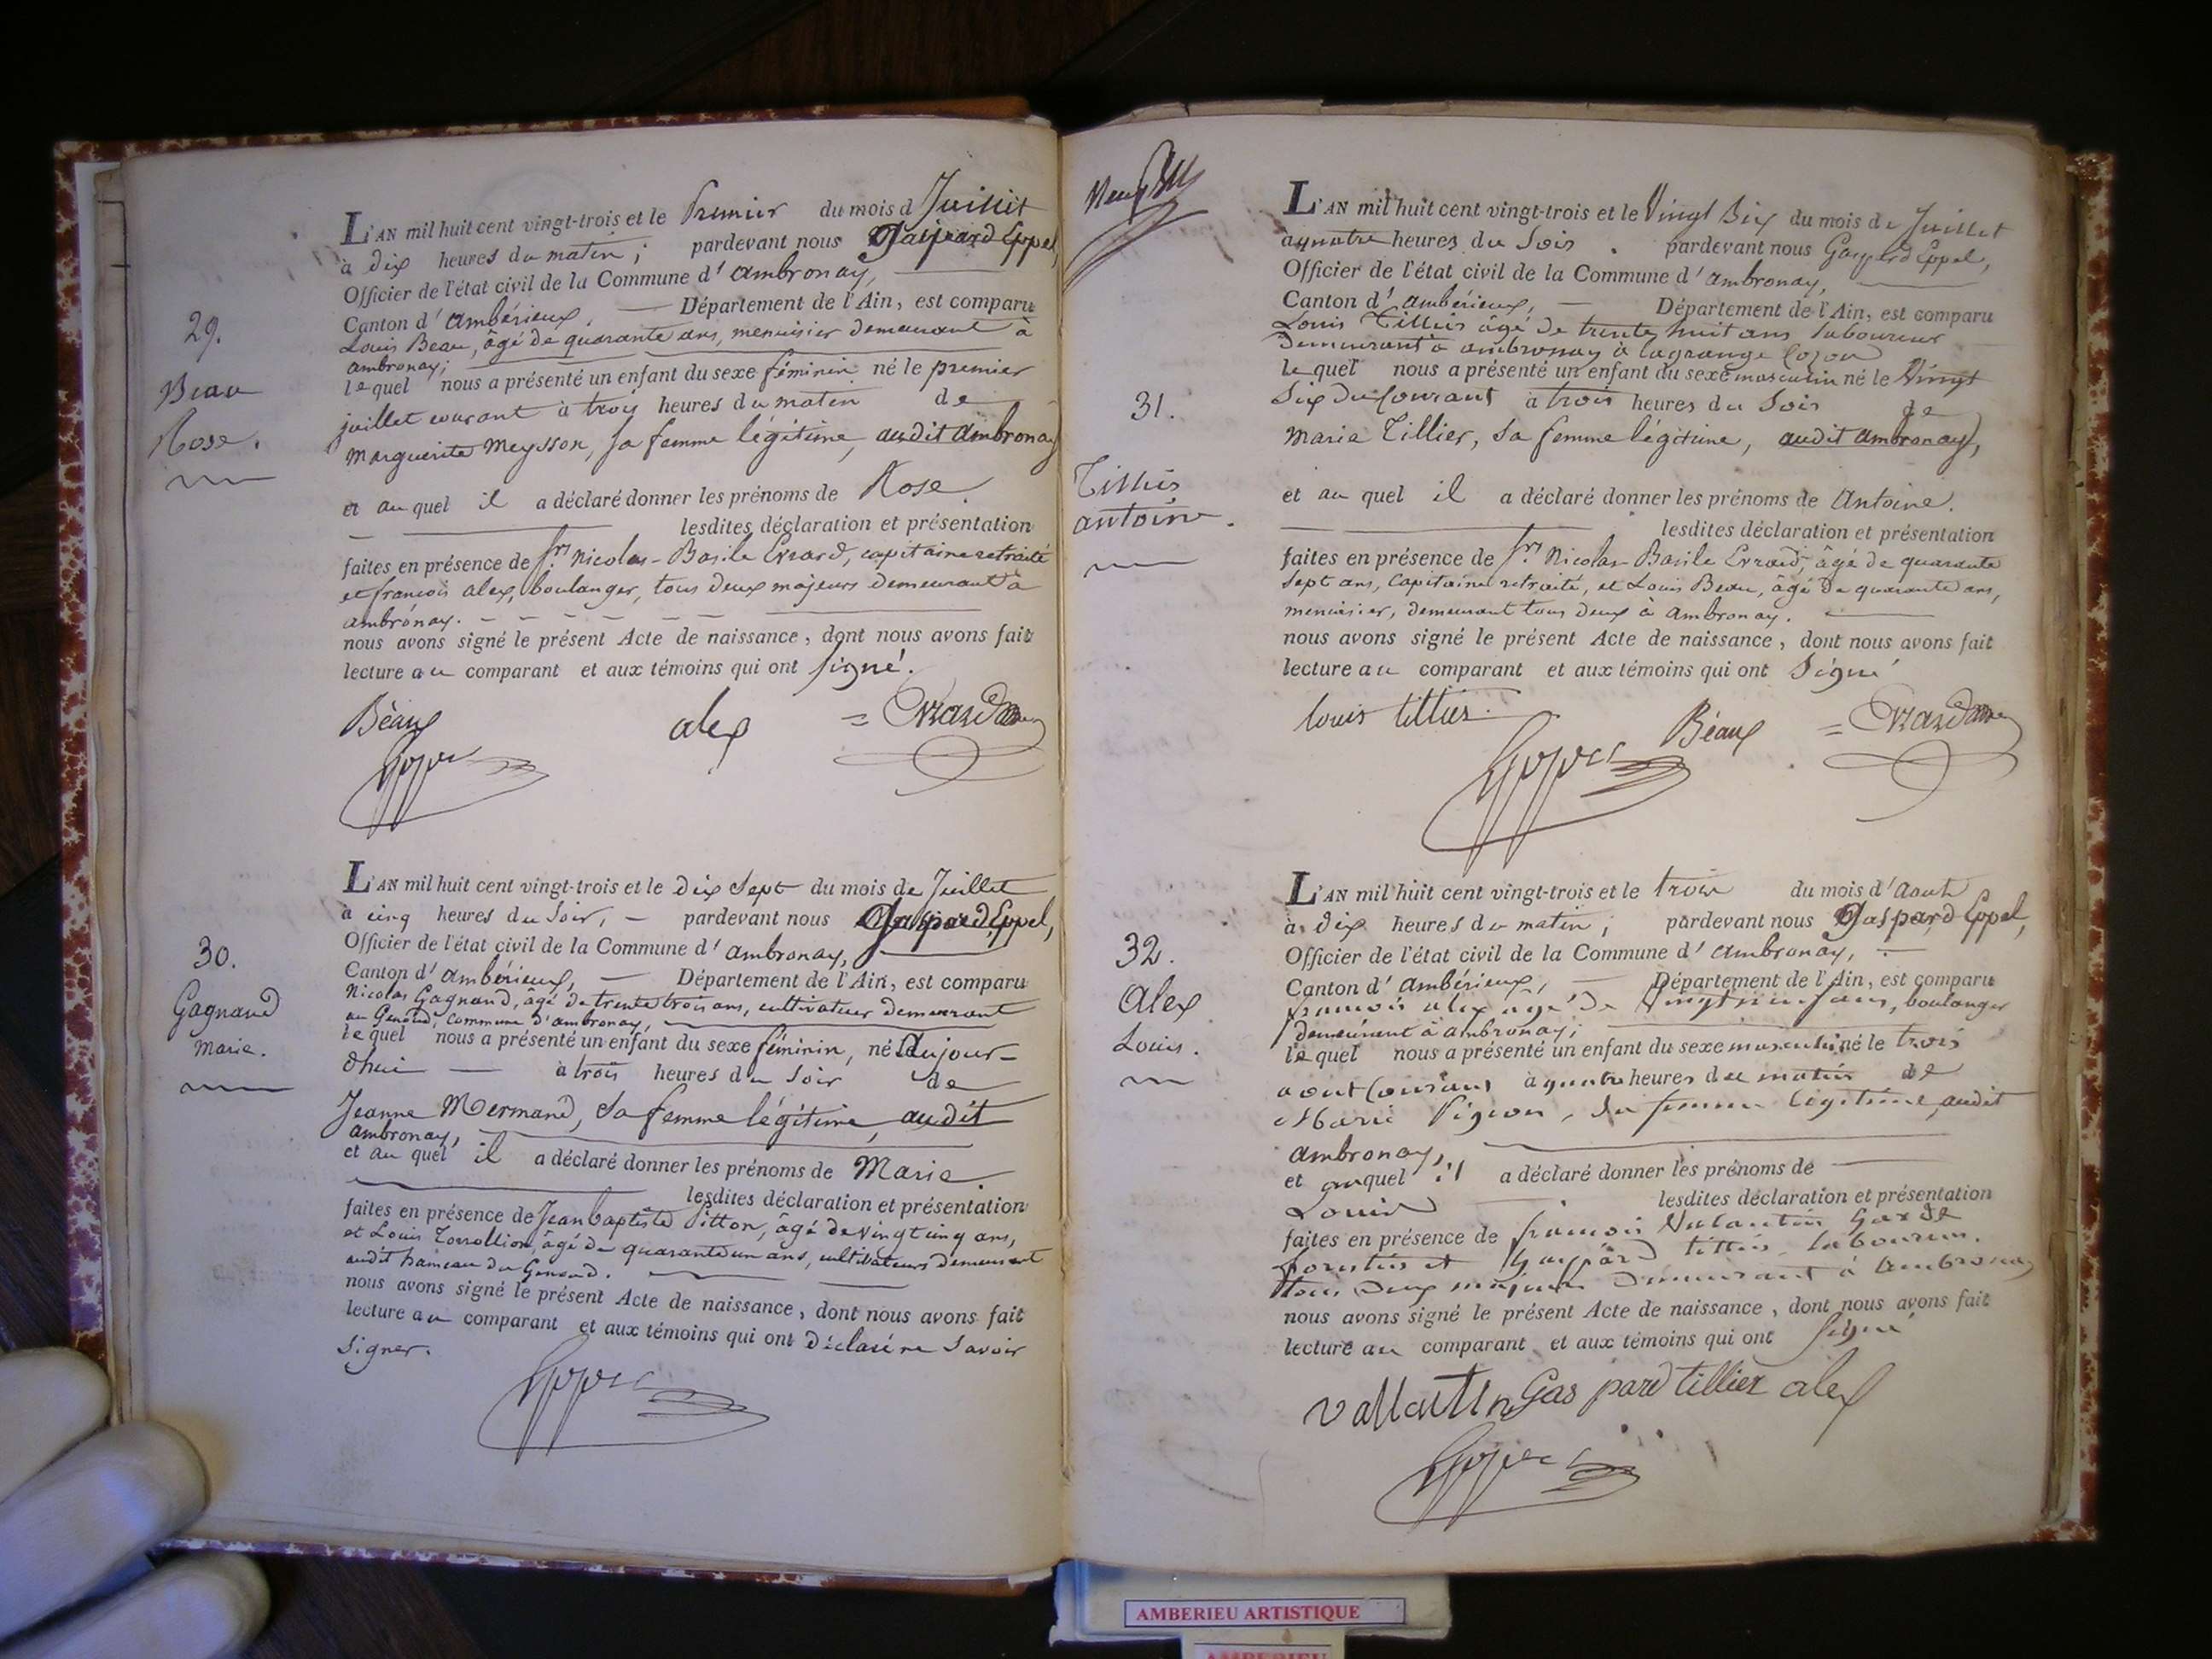 L'AN mil huit cent vingt-trois et le Premier du mois d Juillet
à dix heures du matin ; pardevant nous Gaspard Eppel,
Officier de l'état civil de la Commune d' ambronay,
Canton d' ambérieux, Département de l'Ain, est comparu
Louis Beau, âgé de quarante ans, menuisier demeurant à
ambronay ;
29.
Beau
Rose.
lequel nous a présenté un enfant du sexe féminin né le premier
juillet courant à trois heures du matin de
Marguerite Meysson, sa femme légitime, audit ambronay
et au quel il a déclaré donner les prénoms de Rose.
lesdites déclaration et présentation
faites en présence de Sr. Nicolas-Basile Evrard, capitaine retraité
et françois alex, boulanger, tous deux majeurs demeurant à
ambronay.
nous avons signé le présent Acte de naissance, dont nous avons fait
lecture au comparant et aux témoins qui ont signé.
Béaux alex Evrard
L'AN mil huit cent vingt-trois et le dix sept du mois de Juillet
à cinq heures du soir, pardevant nous Gaspard Eppel,
Officier de l'état civil de la Commune d' ambronay,
Canton d' ambérieux, Département de l'Ain, est comparu
Nicolas Gagnand, âgé de trente trois ans, cultivateur demeurant
au Genoud, commune d'ambronay,
30.
Gagnand
Marie.
lequel nous a présenté un enfant du sexe féminin, né aujour-
dhui à trois heures du soir de
Jeanne Mermand, sa femme légitime, audit
ambronay,
et au quel il a déclaré donner les prénoms de Marie.
lesdites déclaration et présentation
faites en présence de Jean baptiste Pitton, âgé de vingt cinq ans,
et Louis Torrollion, âgé de quarante un ans, cultivateurs demeurant
audit hameau du Genoud.
nous avons signé le présent Acte de naissance, dont nous avons fait
lecture au comparant et aux témoins qui ont déclaré ne savoir
signer.
L'AN mil huit cent vingt-trois et le Vingt Six du mois de Juillet
a quatre heures du Soir . pardevant nous Gaspard Eppel,
Officier de l'état civil de la Commune d' ambronay,
Canton d' ambérieux, Département de l'Ain, est comparu
Louis Tillier âgé de trente huit ans laboureur
demeurant à ambronay à lagrange
31.
Tillier
antoine.
lequel nous a présenté un enfant du sexe masculin né le Vingt
Six du Courant à trois heures du Soir de
Marie Tillier, sa femme légitime, audit ambronay,
et au quel il a déclaré donner les prénoms de Antoine.
lesdites déclaration et présentation
faites en présence de Sr. Nicolas Basile Evrard, âgé de quarante
sept ans, Capitaine retraité, et Louis Beau, âgé de quarante ans,
menuisier, demeurant tous deux à ambronay.
nous avons signé le présent Acte de naissance, dont nous avons fait
lecture au comparant et aux témoins qui ont Signé
louis tillier. Béaux Evrard
L'AN mil huit cent vingt-trois et le trois du mois d'Aout
à dix heures du matin ; pardevant nous Gaspard Eppel,
Officier de l'état civil de la Commune d' ambronay,
Canton d' ambérieux, Département de l'Ain, est comparu
francois alex agé de boulanger
demeurant à ambronay ;
32.
Alex
Louis.
lequel nous a présenté un enfant du sexe masculin né le trois
aout Courant à quatre heures du matin de
Marie Pigeon, sa femme légitime, audit
ambronay,
et auquel il a déclaré donner les prénoms de
Louis lesdites déclaration et présentation
faites en présence de francois Valantin Garde
forestier et Gaspard tillier laboureur.
tous deux majeurs demeurant à Ambronay
nous avons signé le présent Acte de naissance, dont nous avons fait
lecture au comparant et aux témoins qui ont signé
vallantin Gaspard tillier alex
AMBERIEU ARTISTIQUE
AMBERIEU